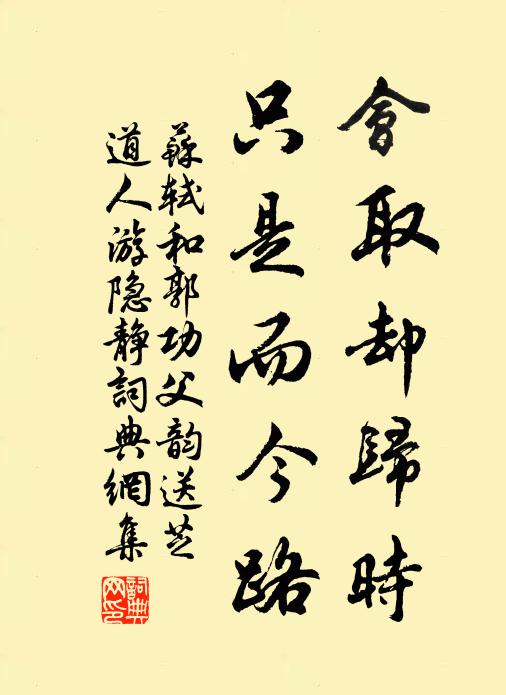 會取却歸時
只是而今路
蘇軾和郭功父韵送芝
道人游隐靜詞典網集